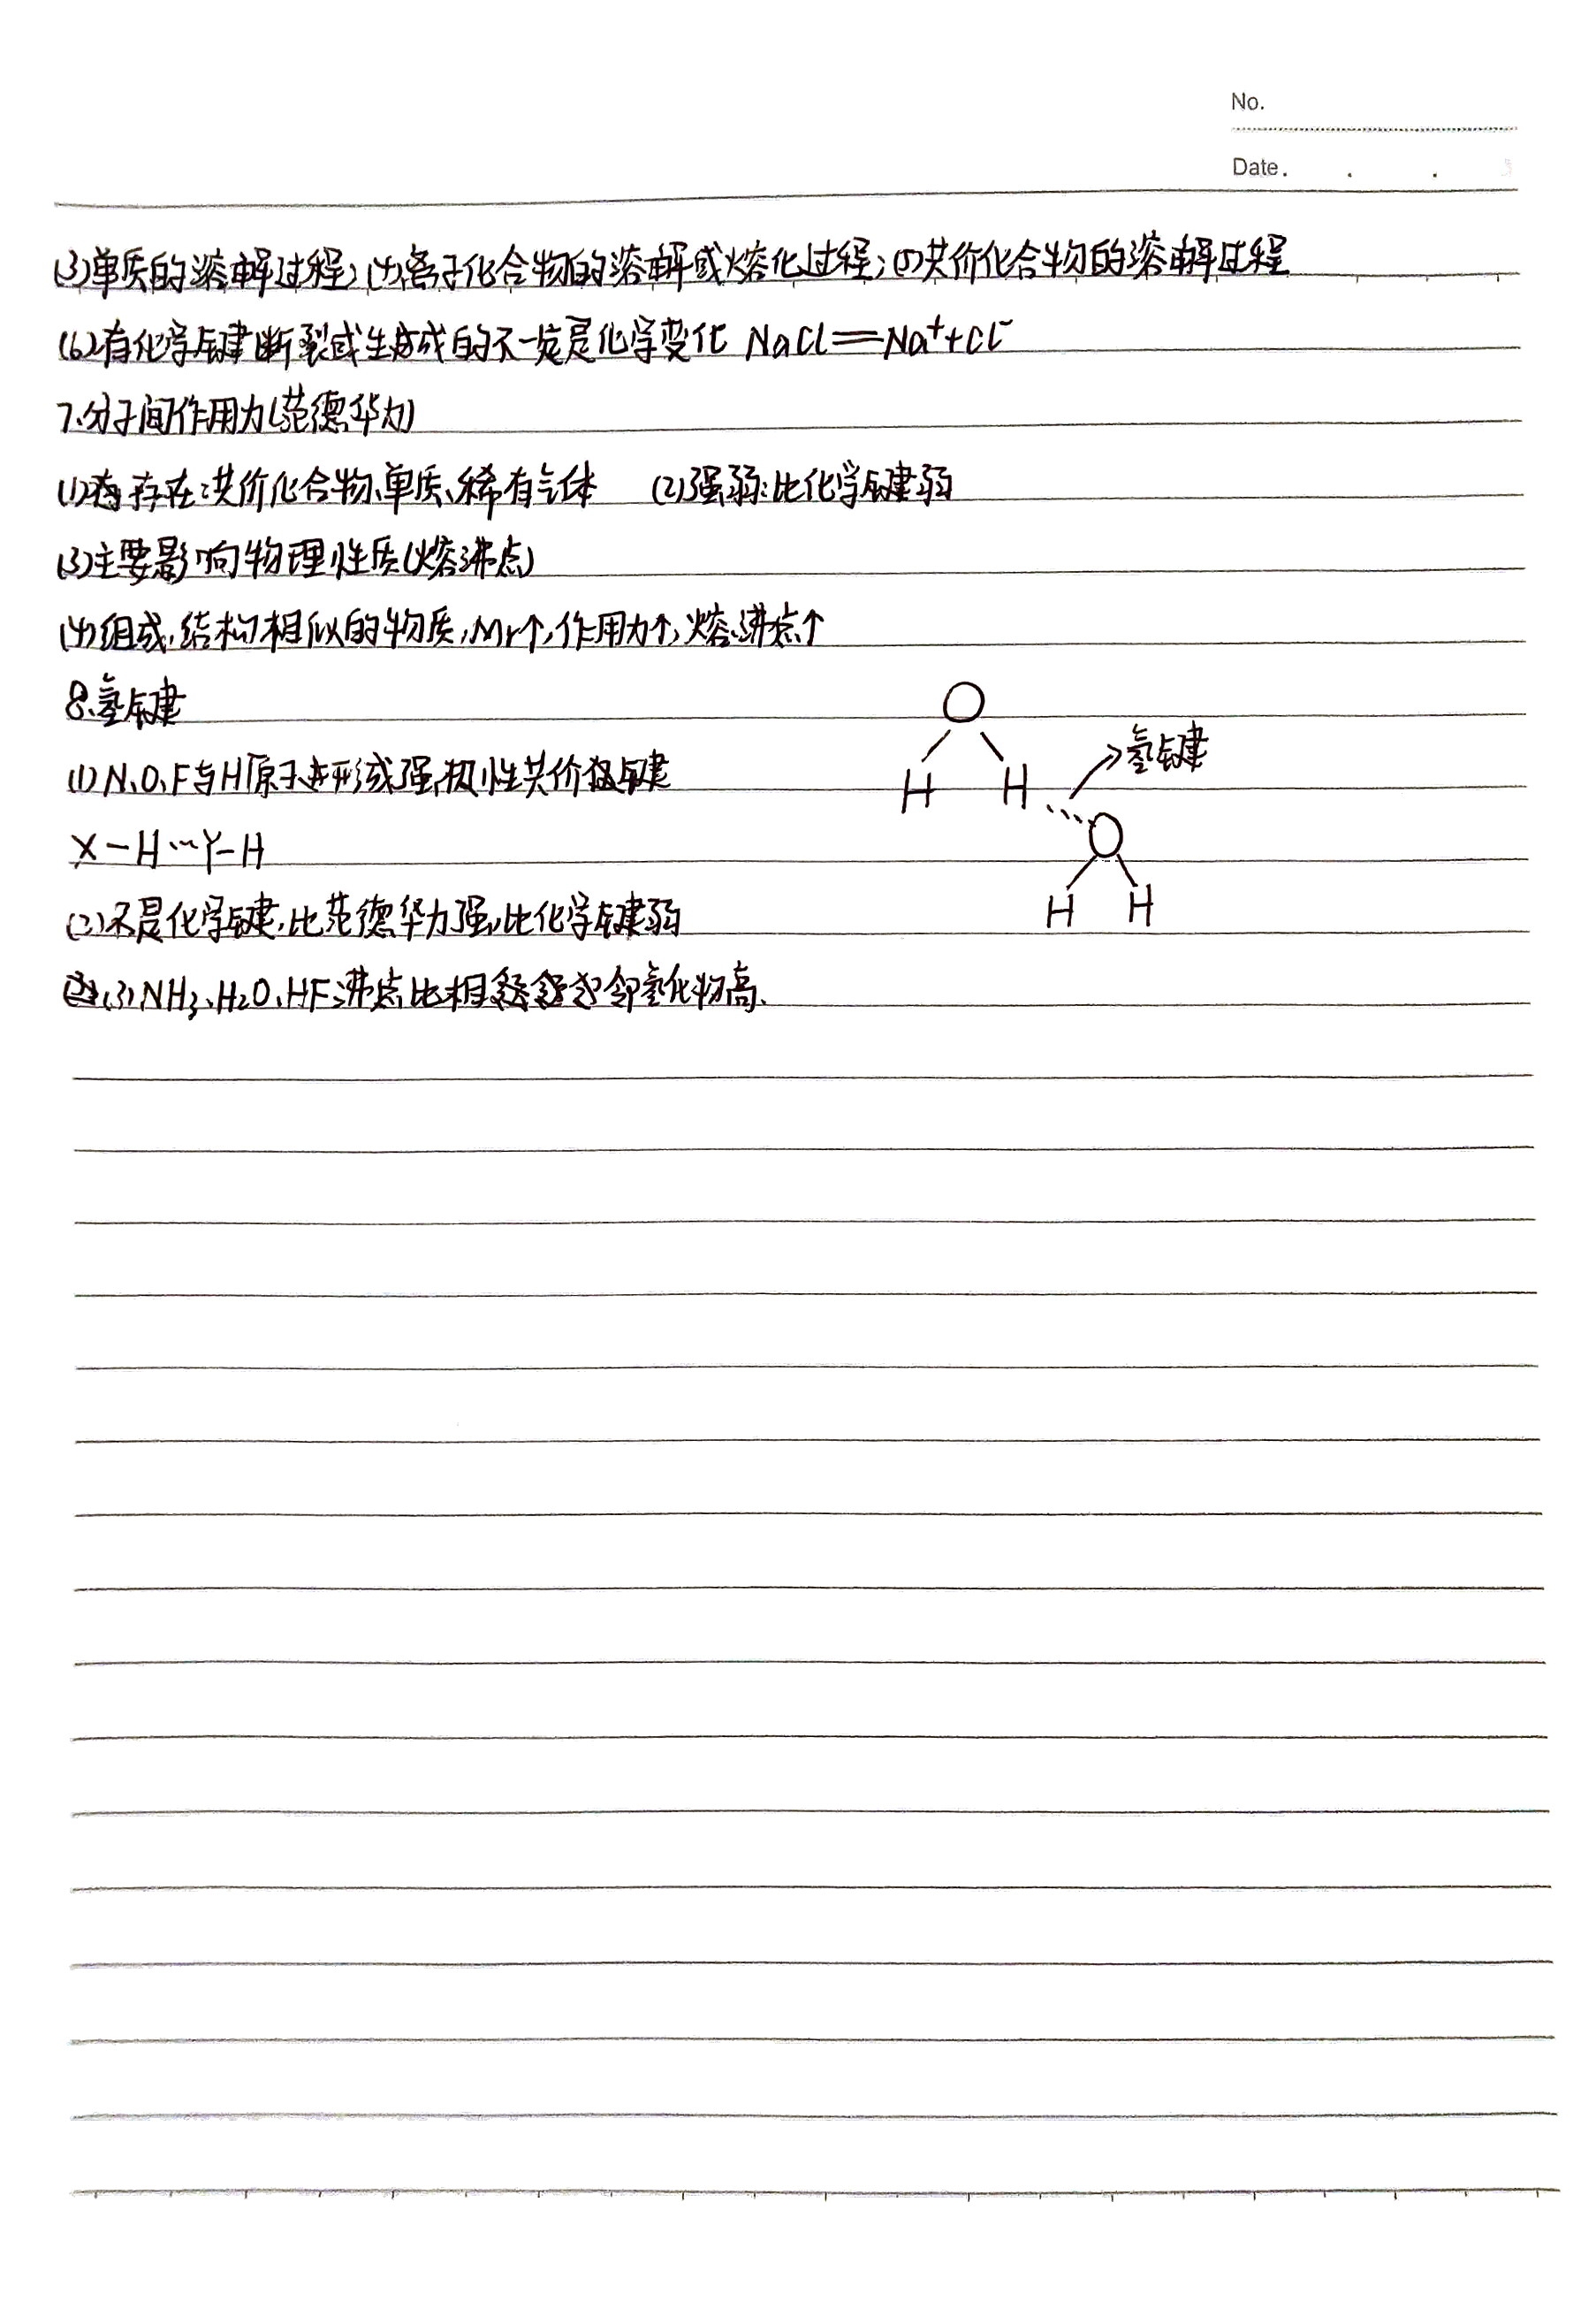 No.
Date.
(3)单质的溶解过程;(4)离子化合物的溶解或熔化过程;(5)共价化合物的溶解过程
(6)有化学键断裂或生成的不一定是化学变化 NaCl=Na⁺+Cl⁻
7.分子间作用力(范德华力)
(1)存在:共价化合物、单质、稀有气体 (2)强弱:比化学键弱
(3)主要影响物理性质(熔沸点)
(4)组成、结构相似的物质,Mr↑,作用力↑,熔、沸点↑
8.氢键
(1)N、O、F与H原子形成强极性共价键
X-H…Y-H
(2)不是化学键,比范德华力强,比化学键弱
(3)NH₃、H₂O、HF沸点比相邻氢化物高.
O
H H
氢键
O
H H